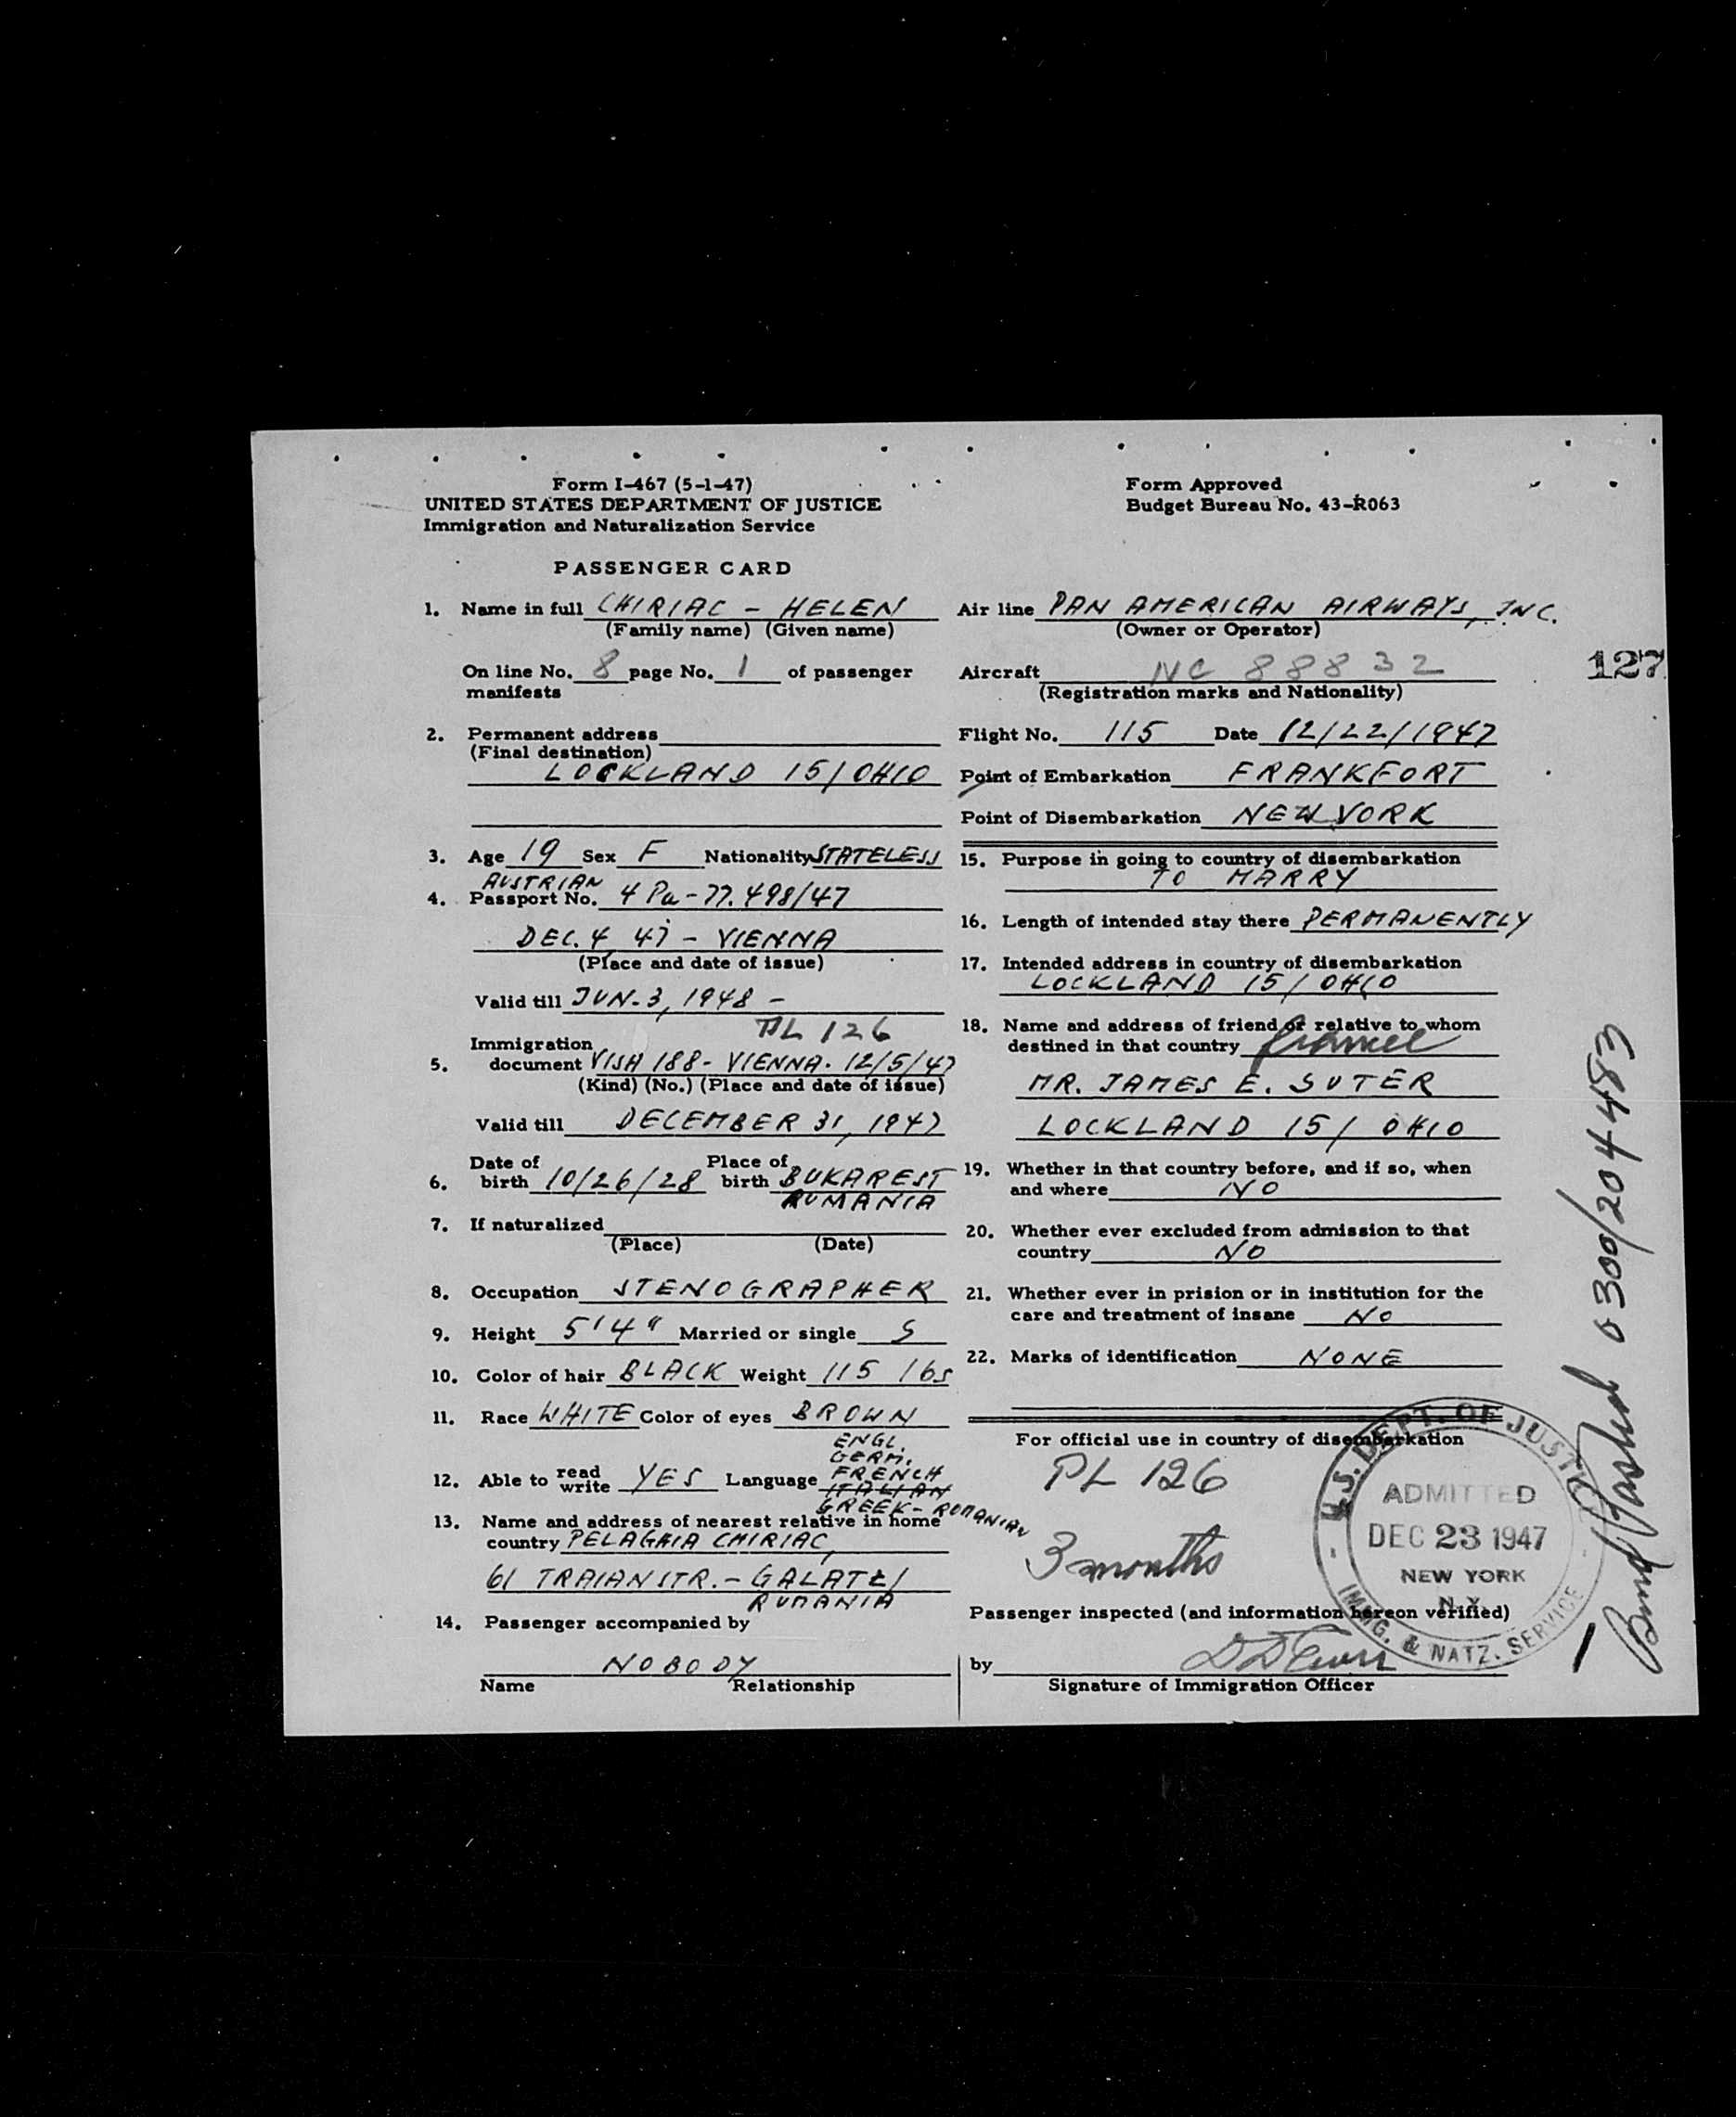 Form I-467 (5-1-47)
UNITED STATES DEPARTMENT OF JUSTICE
Immigration and Naturalization Service
Form Approved
Budget Bureau No. 43-R063
PASSENGER CARD
1. Name in full CHIRIAC - HELEN
(Family name) (Given name)
On line No. 8 page No. 1 of passenger
manifests
2. Permanent address
(Final destination)
LOCKLAND 15/OHIO
3. Age 19 Sex F Nationality STATELESS
AUSTRIAN
4. Passport No. 4 Pa-77.498/47
DEC. 4 47 - VIENNA
(Place and date of issue)
Valid till JUN-3, 1948 -
PL 126
Immigration
5. document VISA 188 - VIENNA. 12/5/47
(Kind) (No.) (Place and date of issue)
Valid till DECEMBER 31, 1947
Date of Place of
6. birth 10/26/28 birth BUKAREST
RUMANIA
7. If naturalized
(Place) (Date)
8. Occupation STENOGRAPHER
9. Height 5'4" Married or single S
10. Color of hair BLACK Weight 115 lbs
11. Race WHITE Color of eyes BROWN
ENGL.
GERM.
12. Able to read write YES Language FRENCH
ITALIAN
GREEK - ROMANIAN
13. Name and address of nearest relative in home
country PELAGHIA CHIRIAC,
61 TRAIAN STR. - GALATZ/
RUMANIA
14. Passenger accompanied by
NOBODY
Name Relationship
Air line PAN AMERICAN AIRWAYS, INC.
(Owner or Operator)
Aircraft NC 88832
(Registration marks and Nationality)
127
Flight No. 115 Date 12/22/1947
Point of Embarkation FRANKFORT
Point of Disembarkation NEW YORK
15. Purpose in going to country of disembarkation
TO MARRY
16. Length of intended stay there PERMANENTLY
17. Intended address in country of disembarkation
LOCKLAND 15/ OHIO
18. Name and address of friend or relative to whom
destined in that country
MR. JAMES E. SUTER
LOCKLAND 15/ OHIO
19. Whether in that country before, and if so, when
and where NO
20. Whether ever excluded from admission to that
country NO
21. Whether ever in prision or in institution for the
care and treatment of insane NO
22. Marks of identification NONE
For official use in country of disembarkation
PL 126
3 months
U.S. DEPT. OF JUSTICE
ADMITTED
DEC 23 1947
NEW YORK
N.Y.
IMMG. & NATZ. SERVICE
Passenger inspected (and information hereon verified)
by
Signature of Immigration Officer
Bond Posted 0300/204483